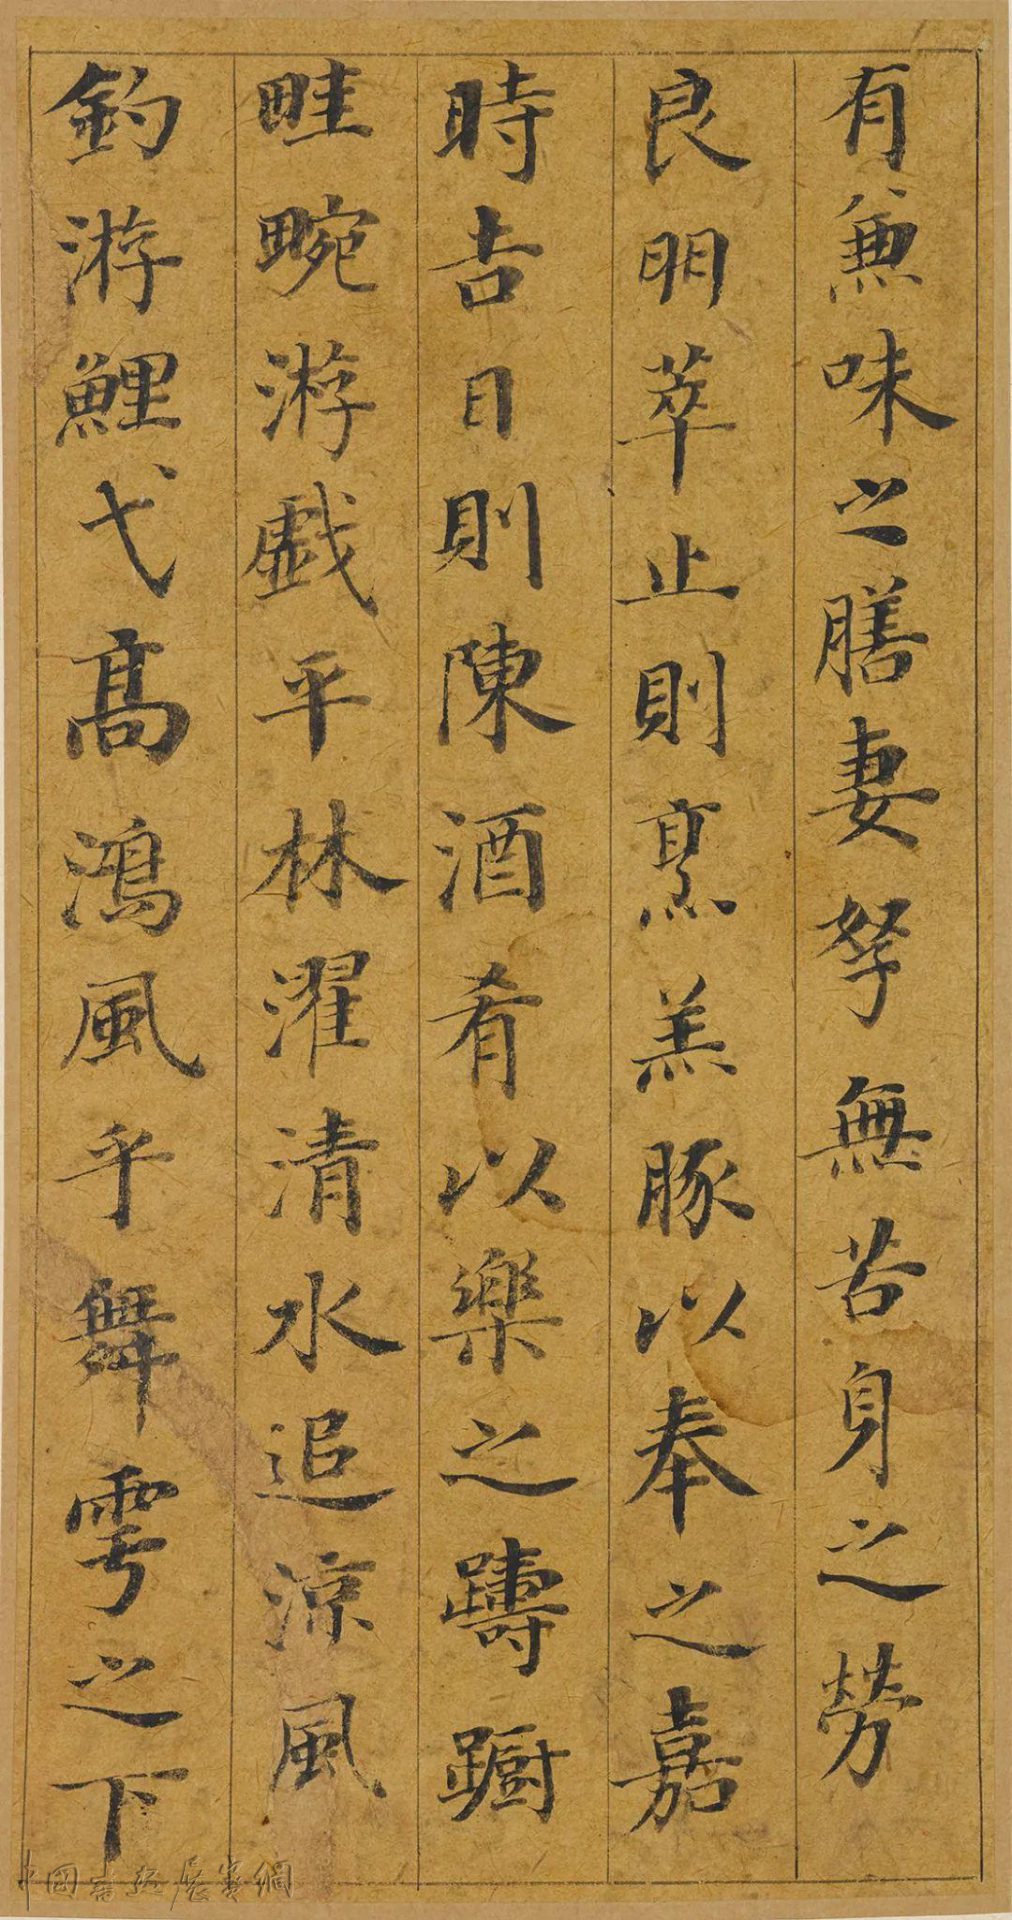 有兼味之膳妻孥無苦身之勞
良朋萃止則烹羔豚以奉之嘉
時吉日則陳酒肴以樂之躊蹰
畦畹游戯平林濯清水追涼風
釣游鯉弋髙鴻風乎舞雩之下